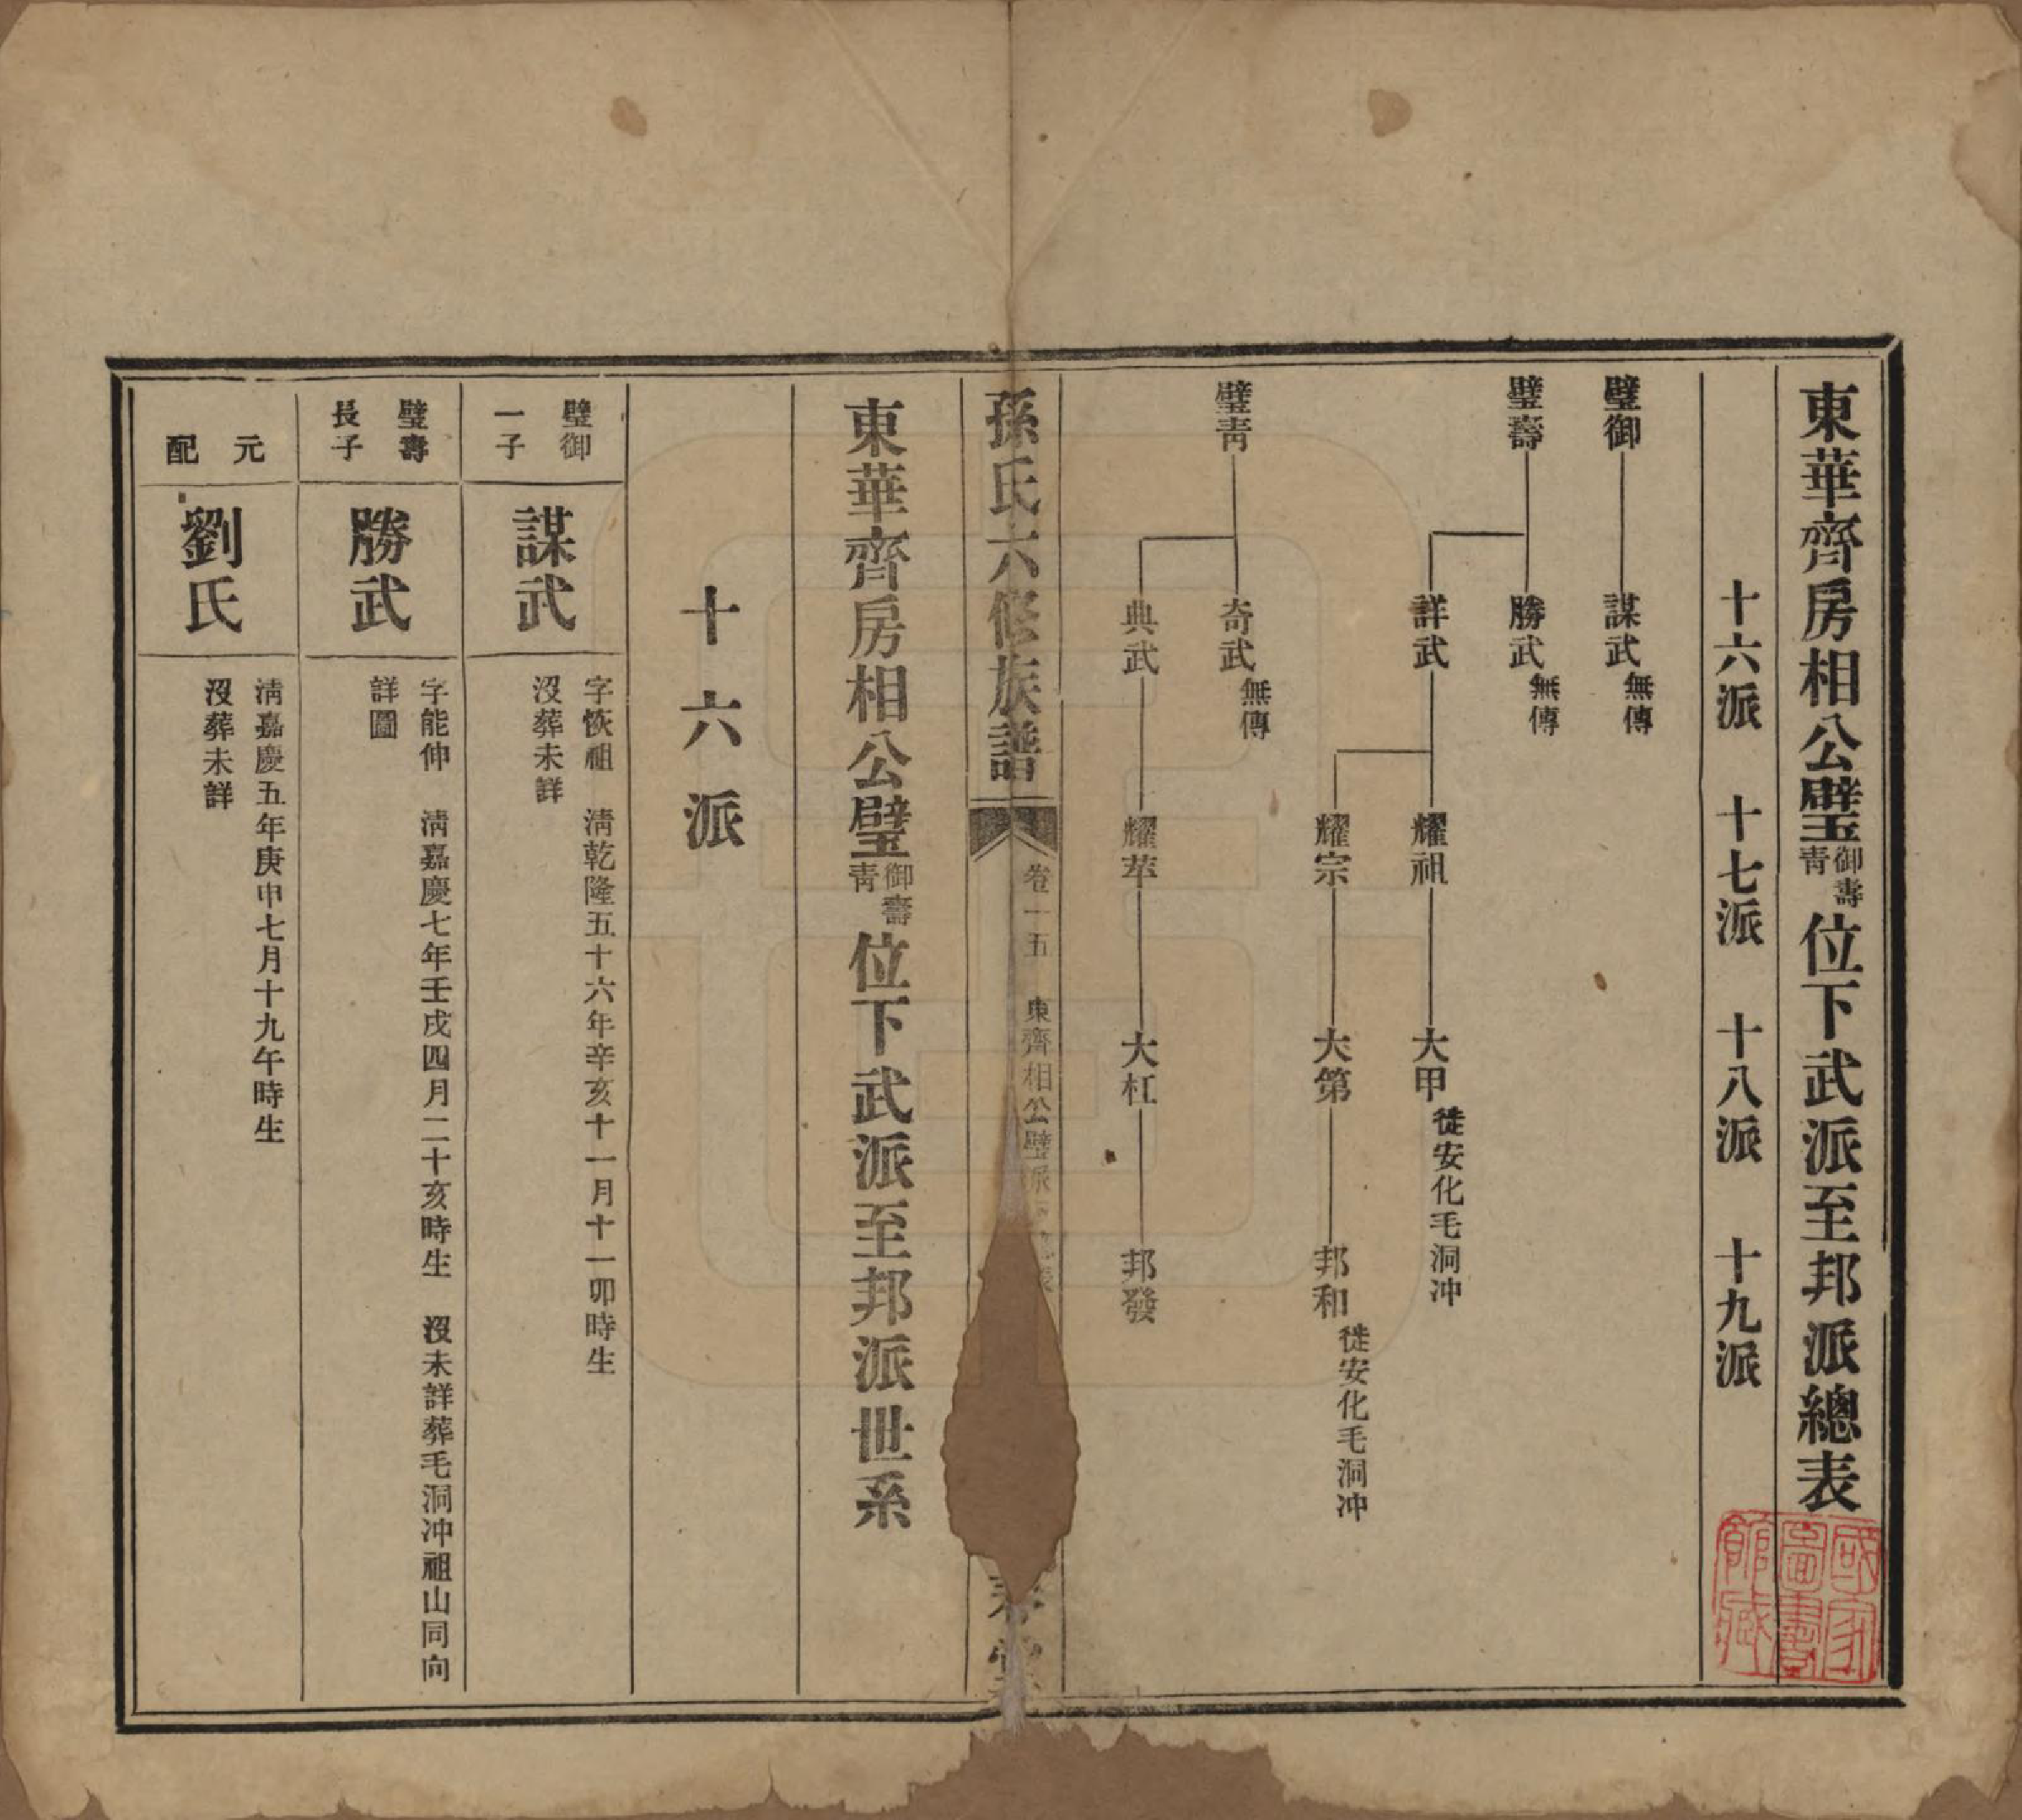 東華齊房相公璧御壽靑位下武派至邦派總表
十六派　十七派　十八派　十九派
璧御　謀武無傳
璧壽　勝武無傳
詳武　耀祖　大甲徙安化毛洞冲
耀宗　大第　邦和徙安化毛洞冲
璧靑　奇武無傳
典武　耀苹　大杠　邦發
孫氏六修族譜　卷一五　東齊相公璧派　表　堂
東華齊房相公璧御壽靑位下武派至邦派世系
十六派
璧御一子
謀武
字恢祖　淸乾隆五十六年辛亥十一月十一卯時生
沒葬未詳
璧壽長子
勝武
字能伸　淸嘉慶七年壬戌四月二十亥時生　沒未詳葬毛洞冲祖山同向
詳圖
元配
劉氏
淸嘉慶五年庚申七月十九午時生
沒葬未詳
國家圖書館藏